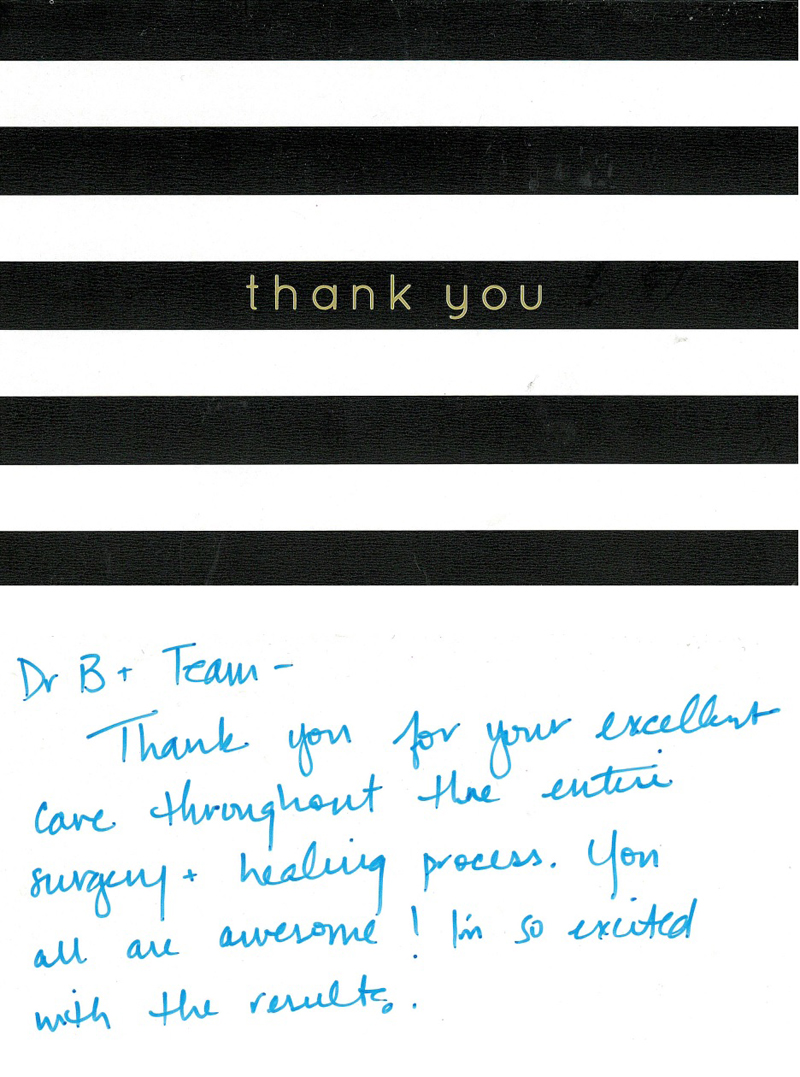 thank you
Dr B + Team -
Thank you for your excellent
care throughout the entire
surgery + healing process. You
all are awesome! I'm so excited
with the results.